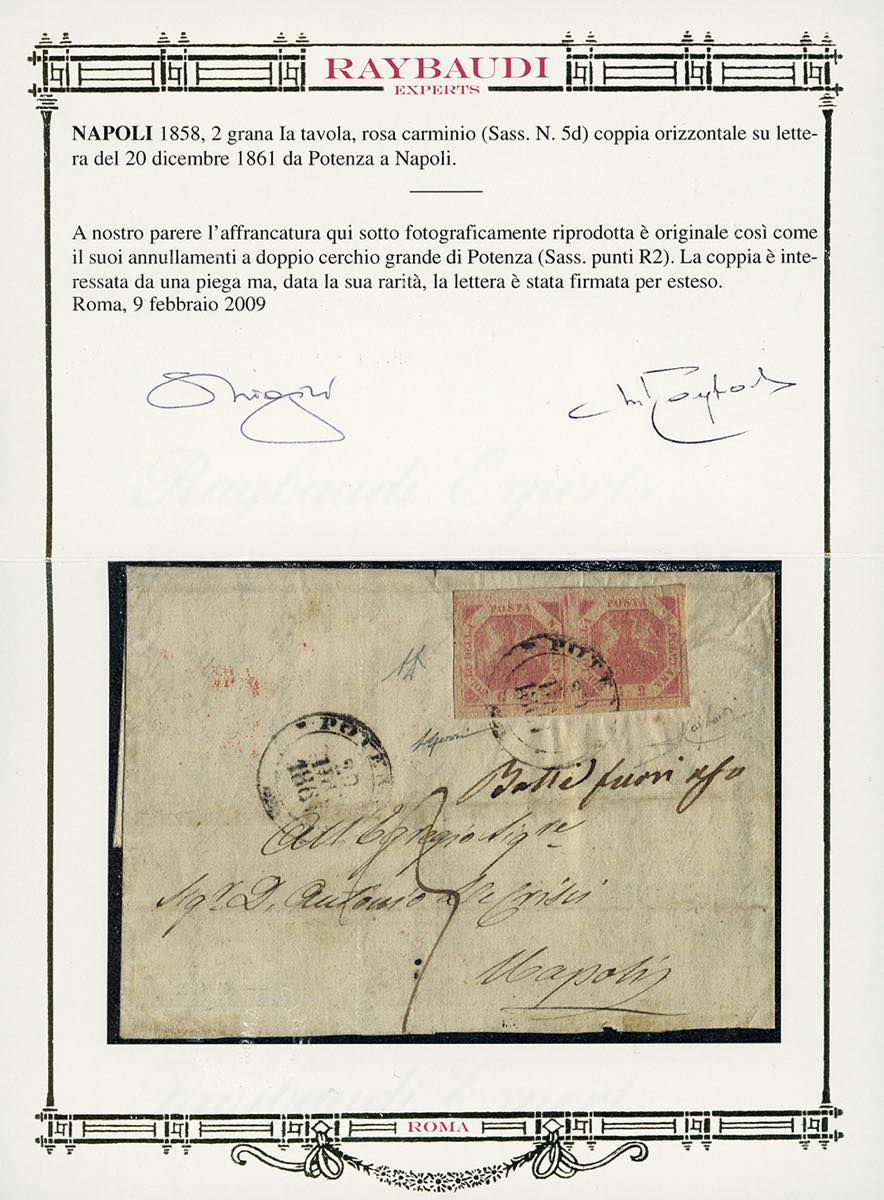 RAYBAUDI
EXPERTS
NAPOLI 1858, 2 grana Ia tavola, rosa carminio (Sass. N. 5d) coppia orizzontale su lette-
ra del 20 dicembre 1861 da Potenza a Napoli.
A nostro parere l’affrancatura qui sotto fotograficamente riprodotta è originale così come
il suoi annullamenti a doppio cerchio grande di Potenza (Sass. punti R2). La coppia è inte-
ressata da una piega ma, data la sua rarità, la lettera è stata firmata per esteso.
Roma, 9 febbraio 2009
Raybaudi Experts
POSTA POSTA
POTE
POTEN
20
DIC
186
Bolli fuori uso
All'Egregio Sigre
Sigr. D. Antonio De Crisci
Napoli
Raybaudi Experts
ROMA